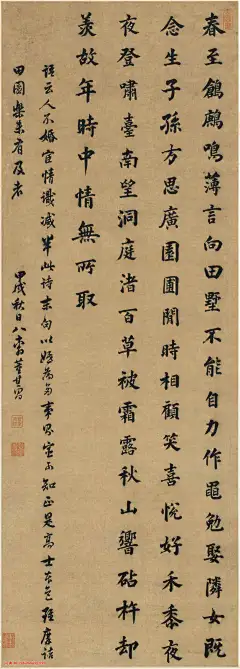 春至鶬鶊鳴薄言向田墅不能自力作黽勉娶隣女既
念生子孫方思廣園圃閒時相顧笑喜悅好禾黍夜
夜登嘯臺南望洞庭渚百草被霜露秋山響砧杵却
羨故年時中情無所取
語云人不婚宦情識減半此詩末句以婚為多事宦不知正是高士本色雖摩詰
田園樂未有及者
甲戌秋日八十翁董其昌